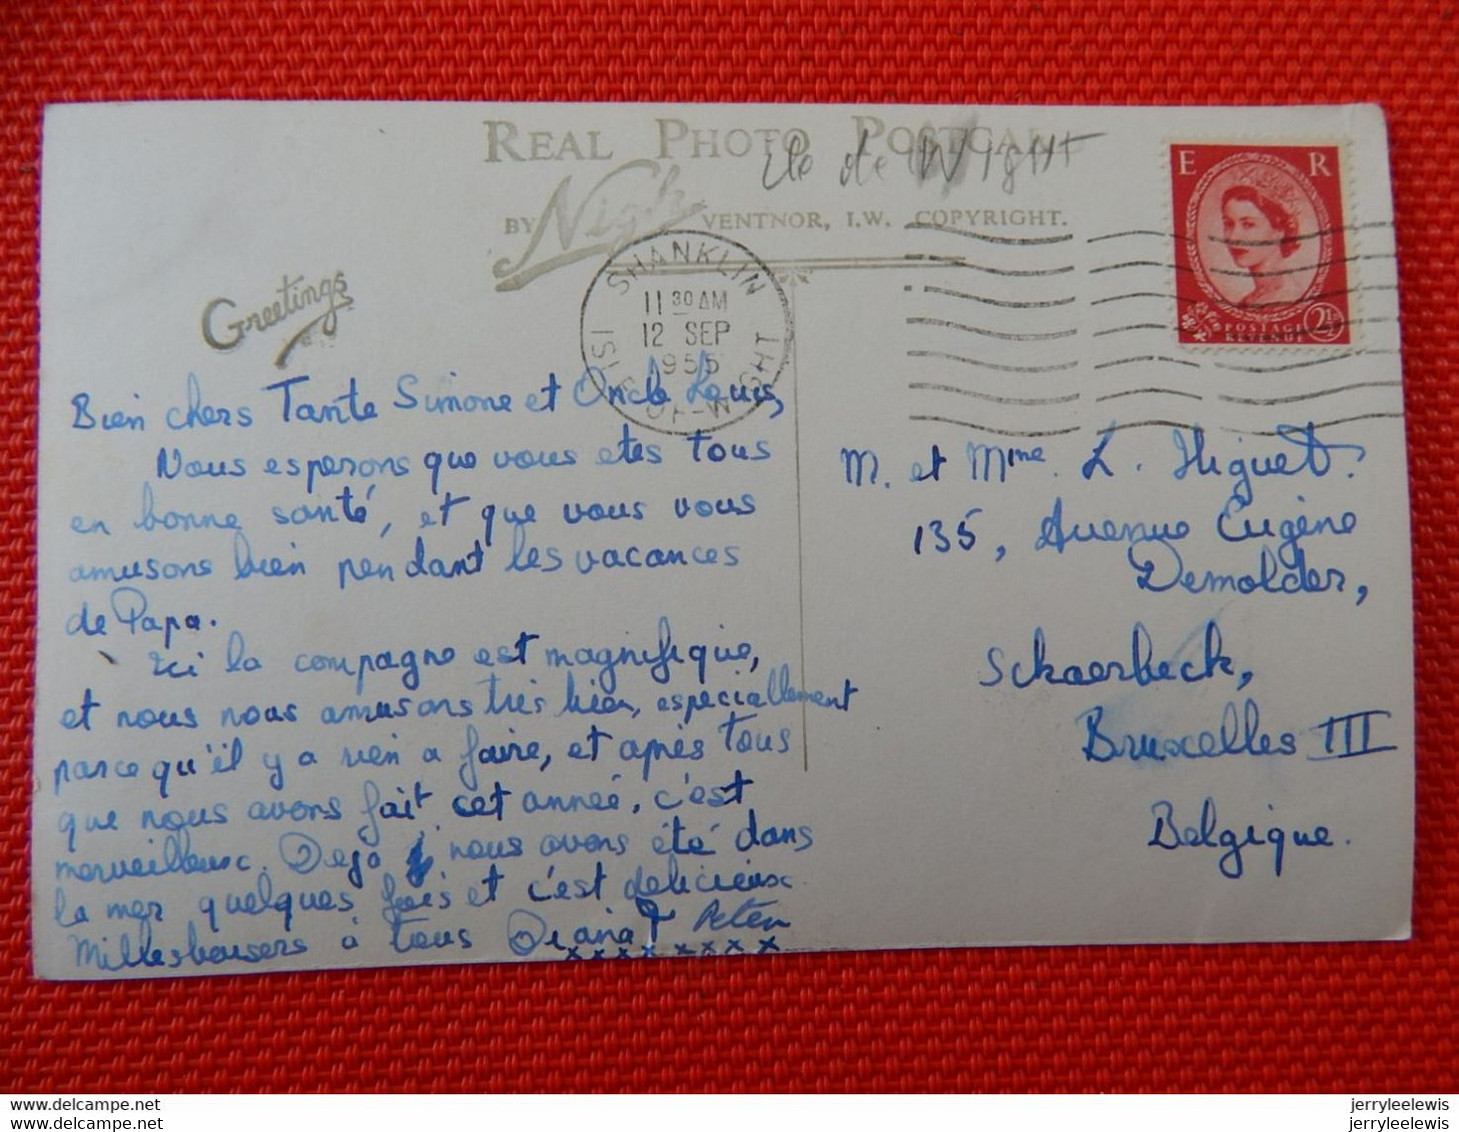 REAL PHOTO POSTCARD
Ile de Wight
BY Nigh VENTNOR, I.W. COPYRIGHT.
E R
POSTAGE
REVENUE
2½
SHANKLIN
ISLE OF WIGHT
11 30 AM
12 SEP
1955
Greetings
Bien chers Tante Simone et Oncle Louis,
Nous esperons que vous etes tous
en bonne santé, et que vous vous
amusons bien pendant les vacances
de Papa.
Ici la compagne est magnifique,
et nous nous amusons très bien, especiallement
parce qu'il y a rien a faire, et après tous
que nous avons fait cet année, c'est
merveilleux. Deja nous avons été dans
la mer quelques fois et c'est delicieux
Milles baisers à tous Diana & Peter
x x x x x x x x
M. et Mme. L. Higuet.
135, Avenue Eugène
Demolder,
Schaerbeck,
Bruxelles III
Belgique.
delcampe.net
delcampe.net
jerryleelewis
jerryleelewis